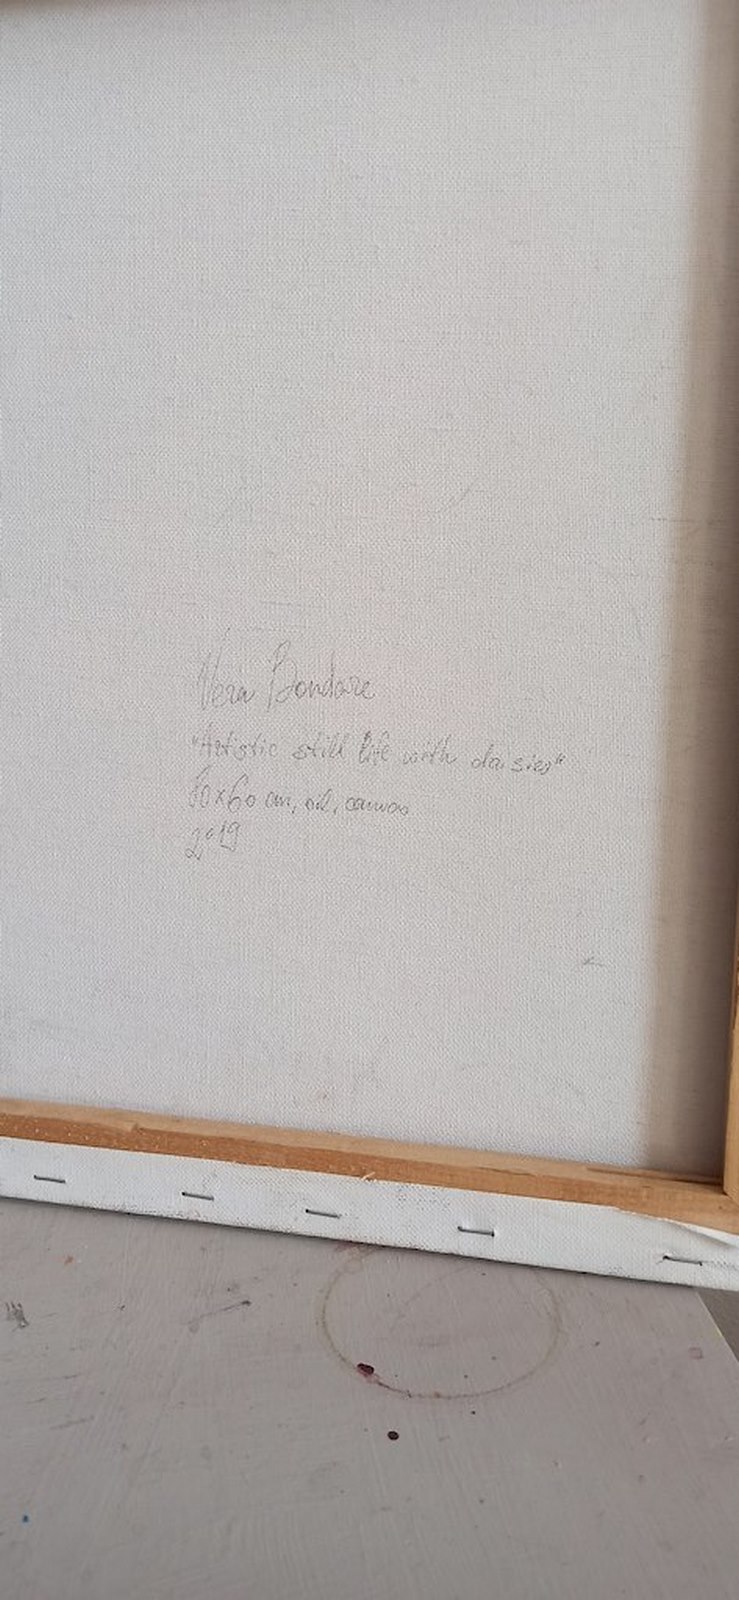 Vera Bondare
"Artistic still life with daisies"
80x60 cm, oil, canvas
2019